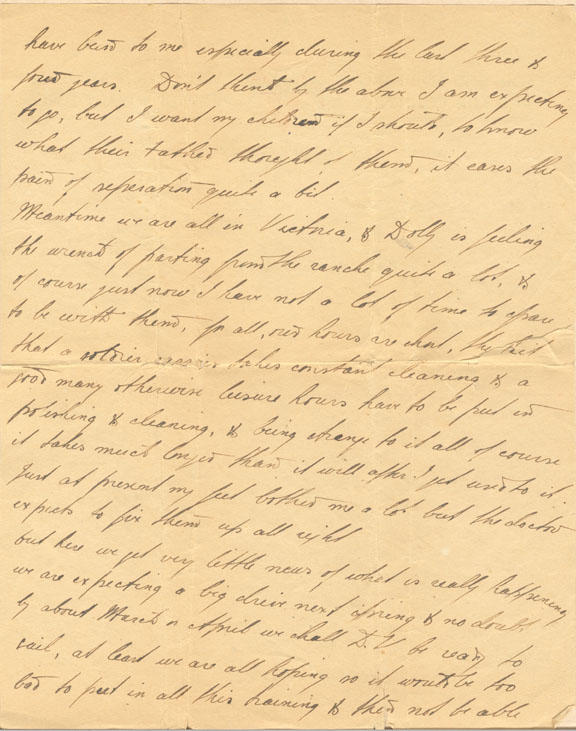 have been to me especially during the last three &
four years. Don't think by the above I am expecting
to go, but I want my children if I should, to know
what their Father thought of them, it eases the
pain of seperation quite a bit.
Meantime we are all in Victoria, & Dolly is feeling
the wrench of parting from the ranche quite a lot, &
of course just now I have not a lot of time to spare
to be with them, for all our hours are short, the kit
that a soldier carries takes constant cleaning & a
good many otherwise leisure hours have to be put in
polishing & cleaning, & being strange to it all of course
it takes much longer than it will after I get used to it.
Just at present my feet bother me a lot but the doctor
expects to fix them up all right
but here we get very little news of what is really happening
we are expecting a big drive next spring & no doubt
by about March or April we shall D.V. be ready to
sail, at least we are all hoping so it would be too
bad to put in all this training & then not be able